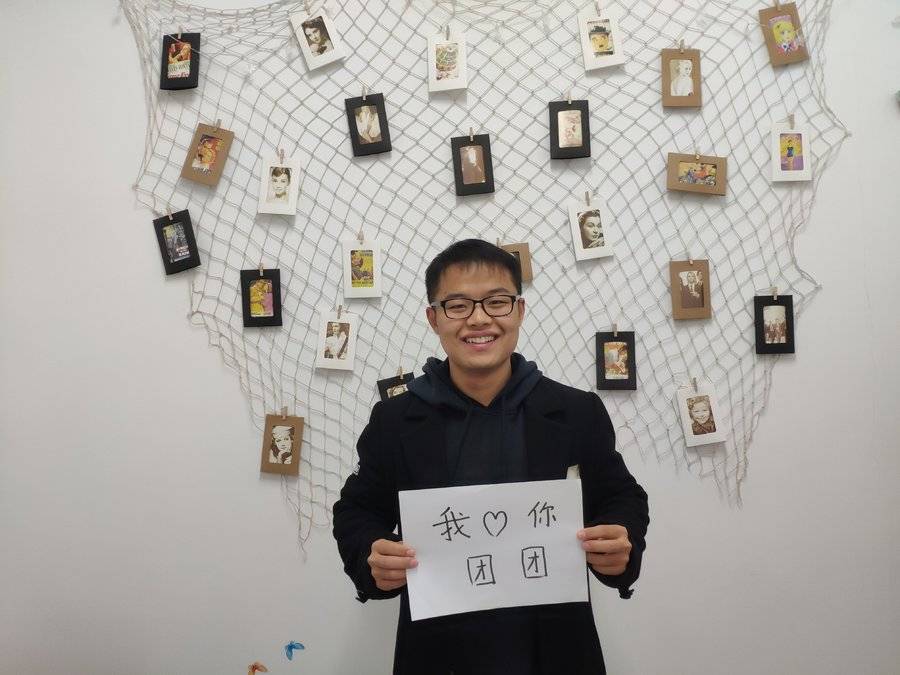 我♡你
团团